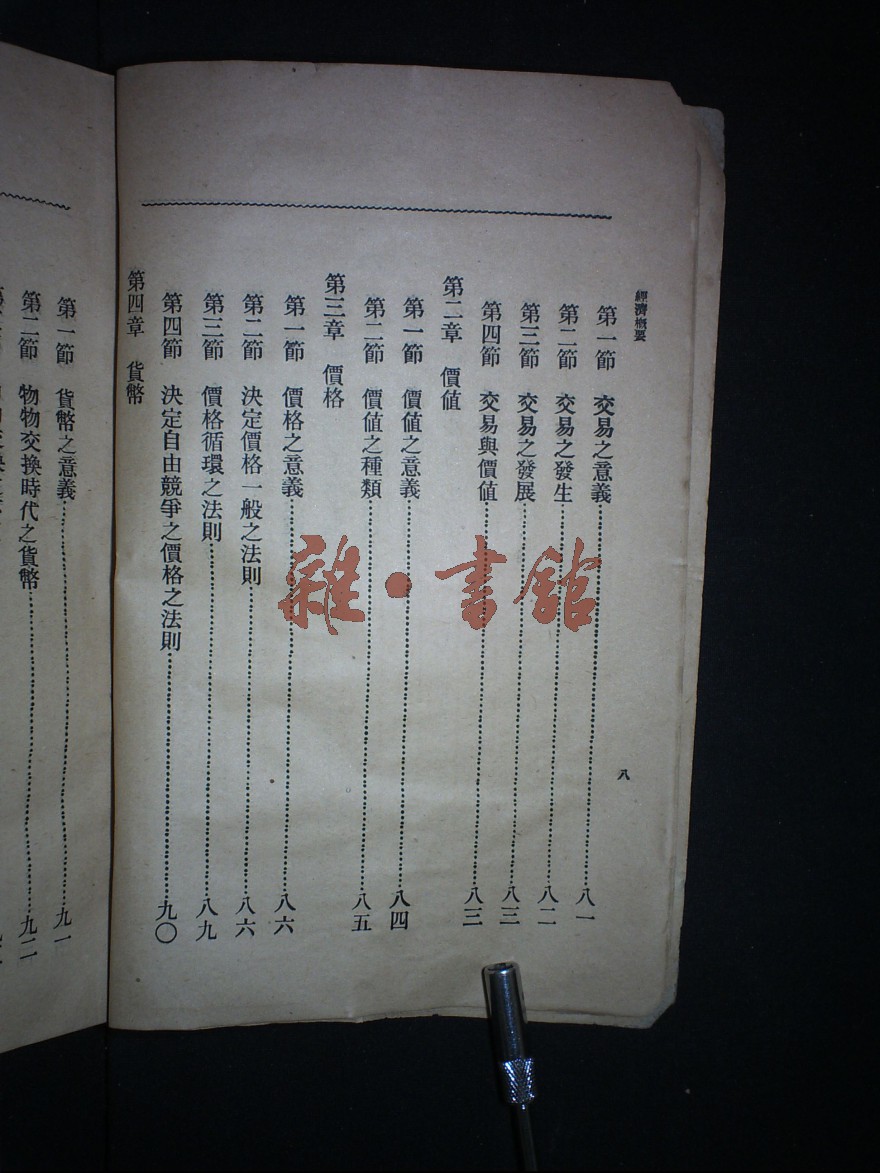 經濟概要
八
第一節　交易之意義……八一
第二節　交易之發生……八二
第三節　交易之發展……八三
第四節　交易與價値……八三
第二章　價値
第一節　價値之意義……八四
第二節　價値之種類……八五
第三章　價格
第一節　價格之意義……八六
第二節　決定價格一般之法則……八六
第三節　價格循環之法則……八九
第四節　決定自由競爭之價格之法則……九〇
第四章　貨幣
第一節　貨幣之意義……九一
第二節　物物交換時代之貨幣……九二
雜·書館